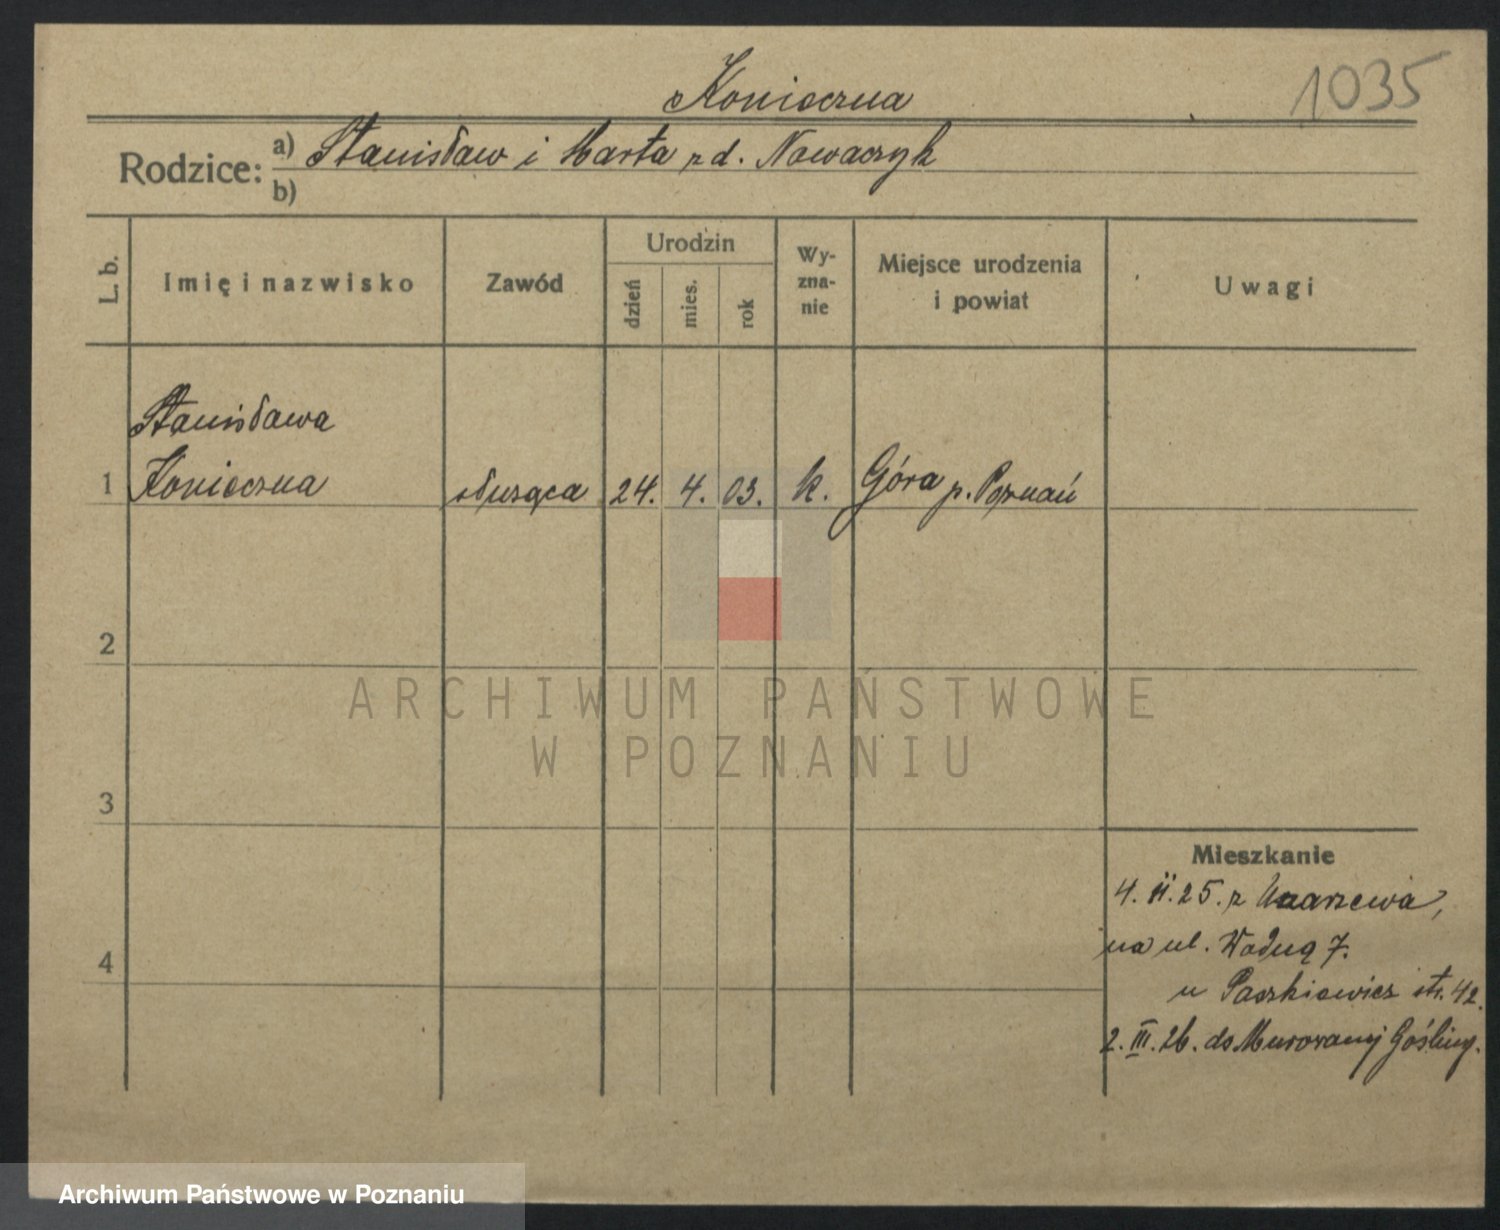 Konieczna
1035
Rodzice: a) Stanisław i Marta zd. Nowaczyk
b)
L. b.
Imię i nazwisko
Zawód
Urodzin
dzień
mies.
rok
Wy-
zna-
nie
Miejsce urodzenia
i powiat
Uwagi
Stanisława
1 Konieczna służąca 24. 4. 03. k. Góra p. Poznań
2
ARCHIWUM PAŃSTWOWE
W POZNANIU
3
Mieszkanie
4. II. 25. z Uzarzewa,
na ul. Wodną 7.
4
u Paszkiewicz str. 42.
2. III. 26. do Murowanej Gośliny.
Archiwum Państwowe w Poznaniu